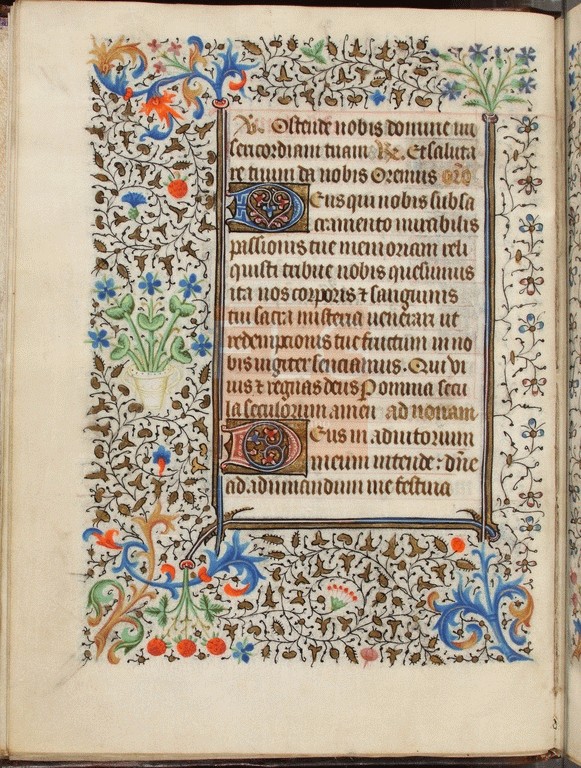 V. Ostende nobis domine mi
sericordiam tuam. Re. Et saluta
re tuum da nobis Oremus orō
Deus qui nobis sub sa
cramento mirabilis
passionis tue memoriam reli
quisti tribue nobis quesumus
ita nos corporis ⁊ sanguinis
tui sacra misteria venerari ut
redempcionis tue fructum in no
bis iugiter senciamus. Qui vi
uis ⁊ regnas deus Per omnia secu
la seculorum amen ad nonam
Deus in adiutorium
meum intende: dn̄e
ad adiuuandum me festina